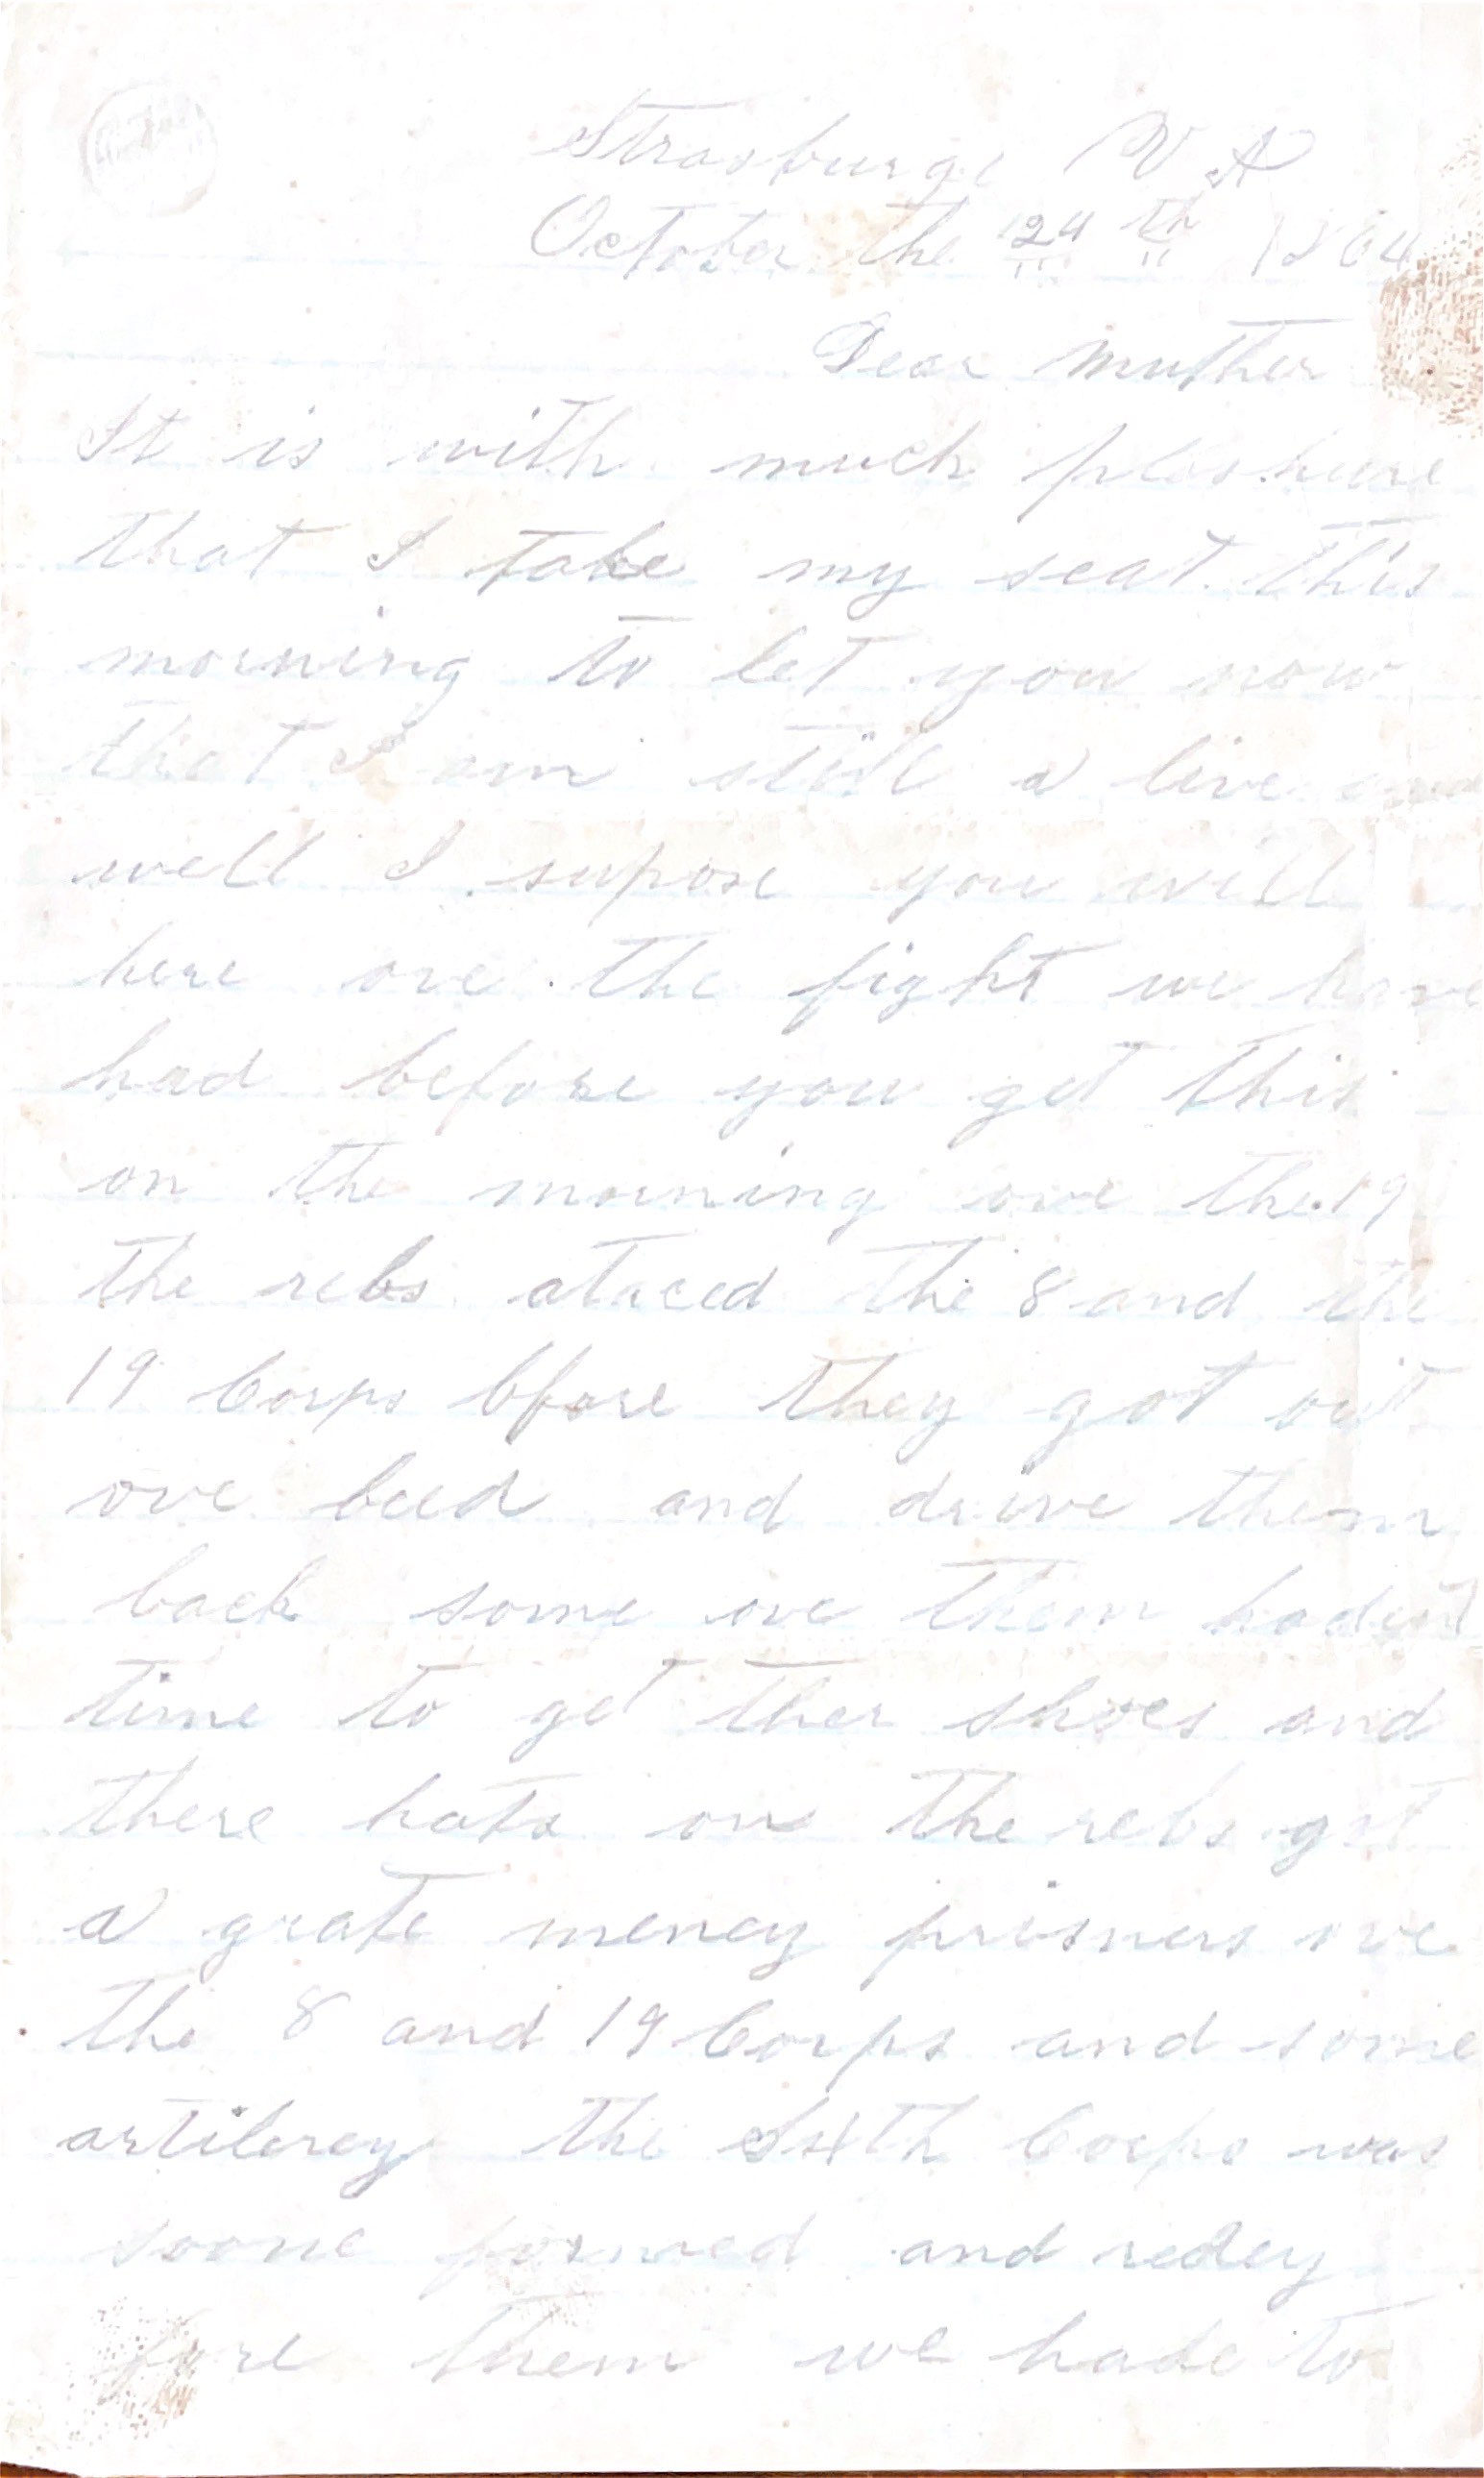 Strasburge V A
October the 24 th 1864
Dear Muther
It is with much plashure
that I take my seat this
morning to let you now
that I am still a live and
well I supose you will
here ove the fight we have
had before you get this
on the morning ove the 19
the rebs ataced the 8 and the
19 Corps bfore they got out
ove bed and drove them
back some ove them hadent
time to get ther shoes and
there hats on the rebs got
a grate meney prisners ove
the 8 and 19 Corps and some
artilerey the Sixth Corps was
soone formed and redey
fore them we hade to